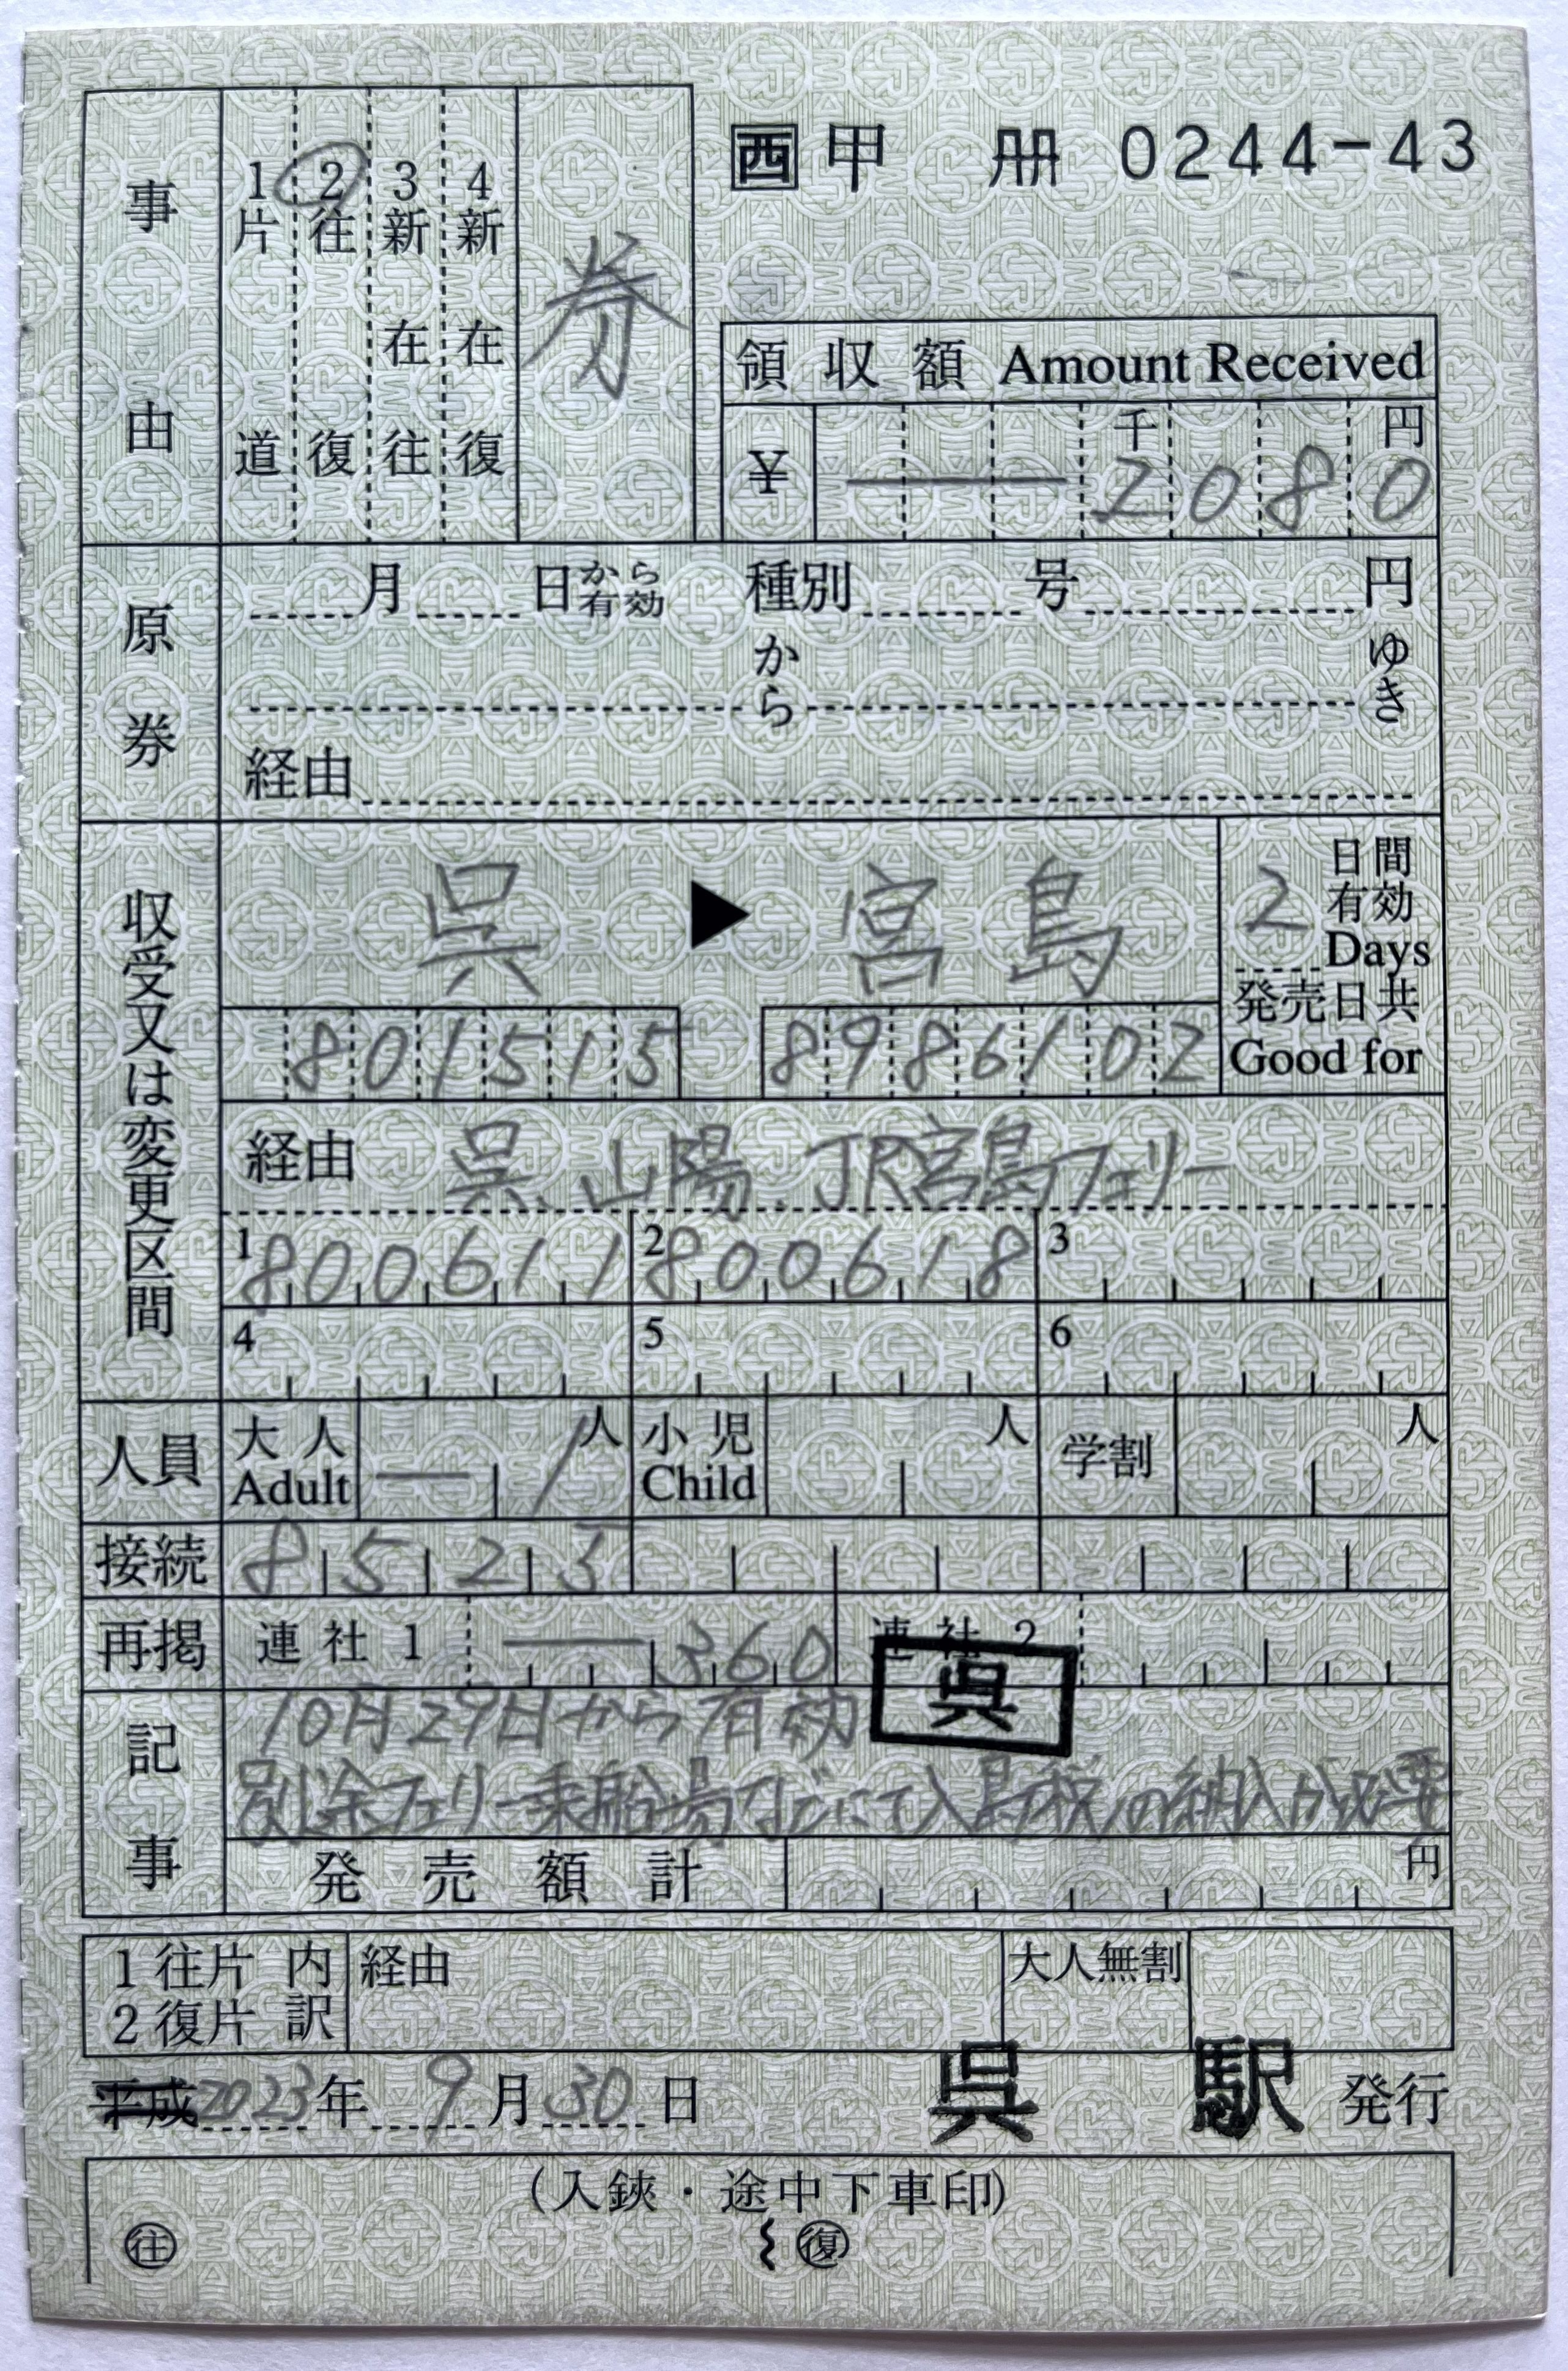 西 甲 冊 0244-43
事由
1片道
2往復
3新在往
4新在復
券
領収額 Amount Received
¥ 千 円
2080
原券
月 日から有効 種別 号 円
から ゆき
経由
収受又は変更区間
呉 ▶ 宮島
2 日間有効 Days
発売日共 Good for
801515 8986102
経由 呉、山陽、JR宮島フェリー
1 800611 2 800618 3
4 5 6
人員 大人 Adult 1 人 小児 Child 人 学割 人
接続 8523
再掲 連社1 360 連社2
呉
記事
10月29日から有効
別途フェリー乗船場などにて入島税の納入が必要
発売額計 円
1往片 2復片 内訳 経由 大人無割
平成2023年9月30日 呉駅 発行
(入鋏・途中下車印)
往 復